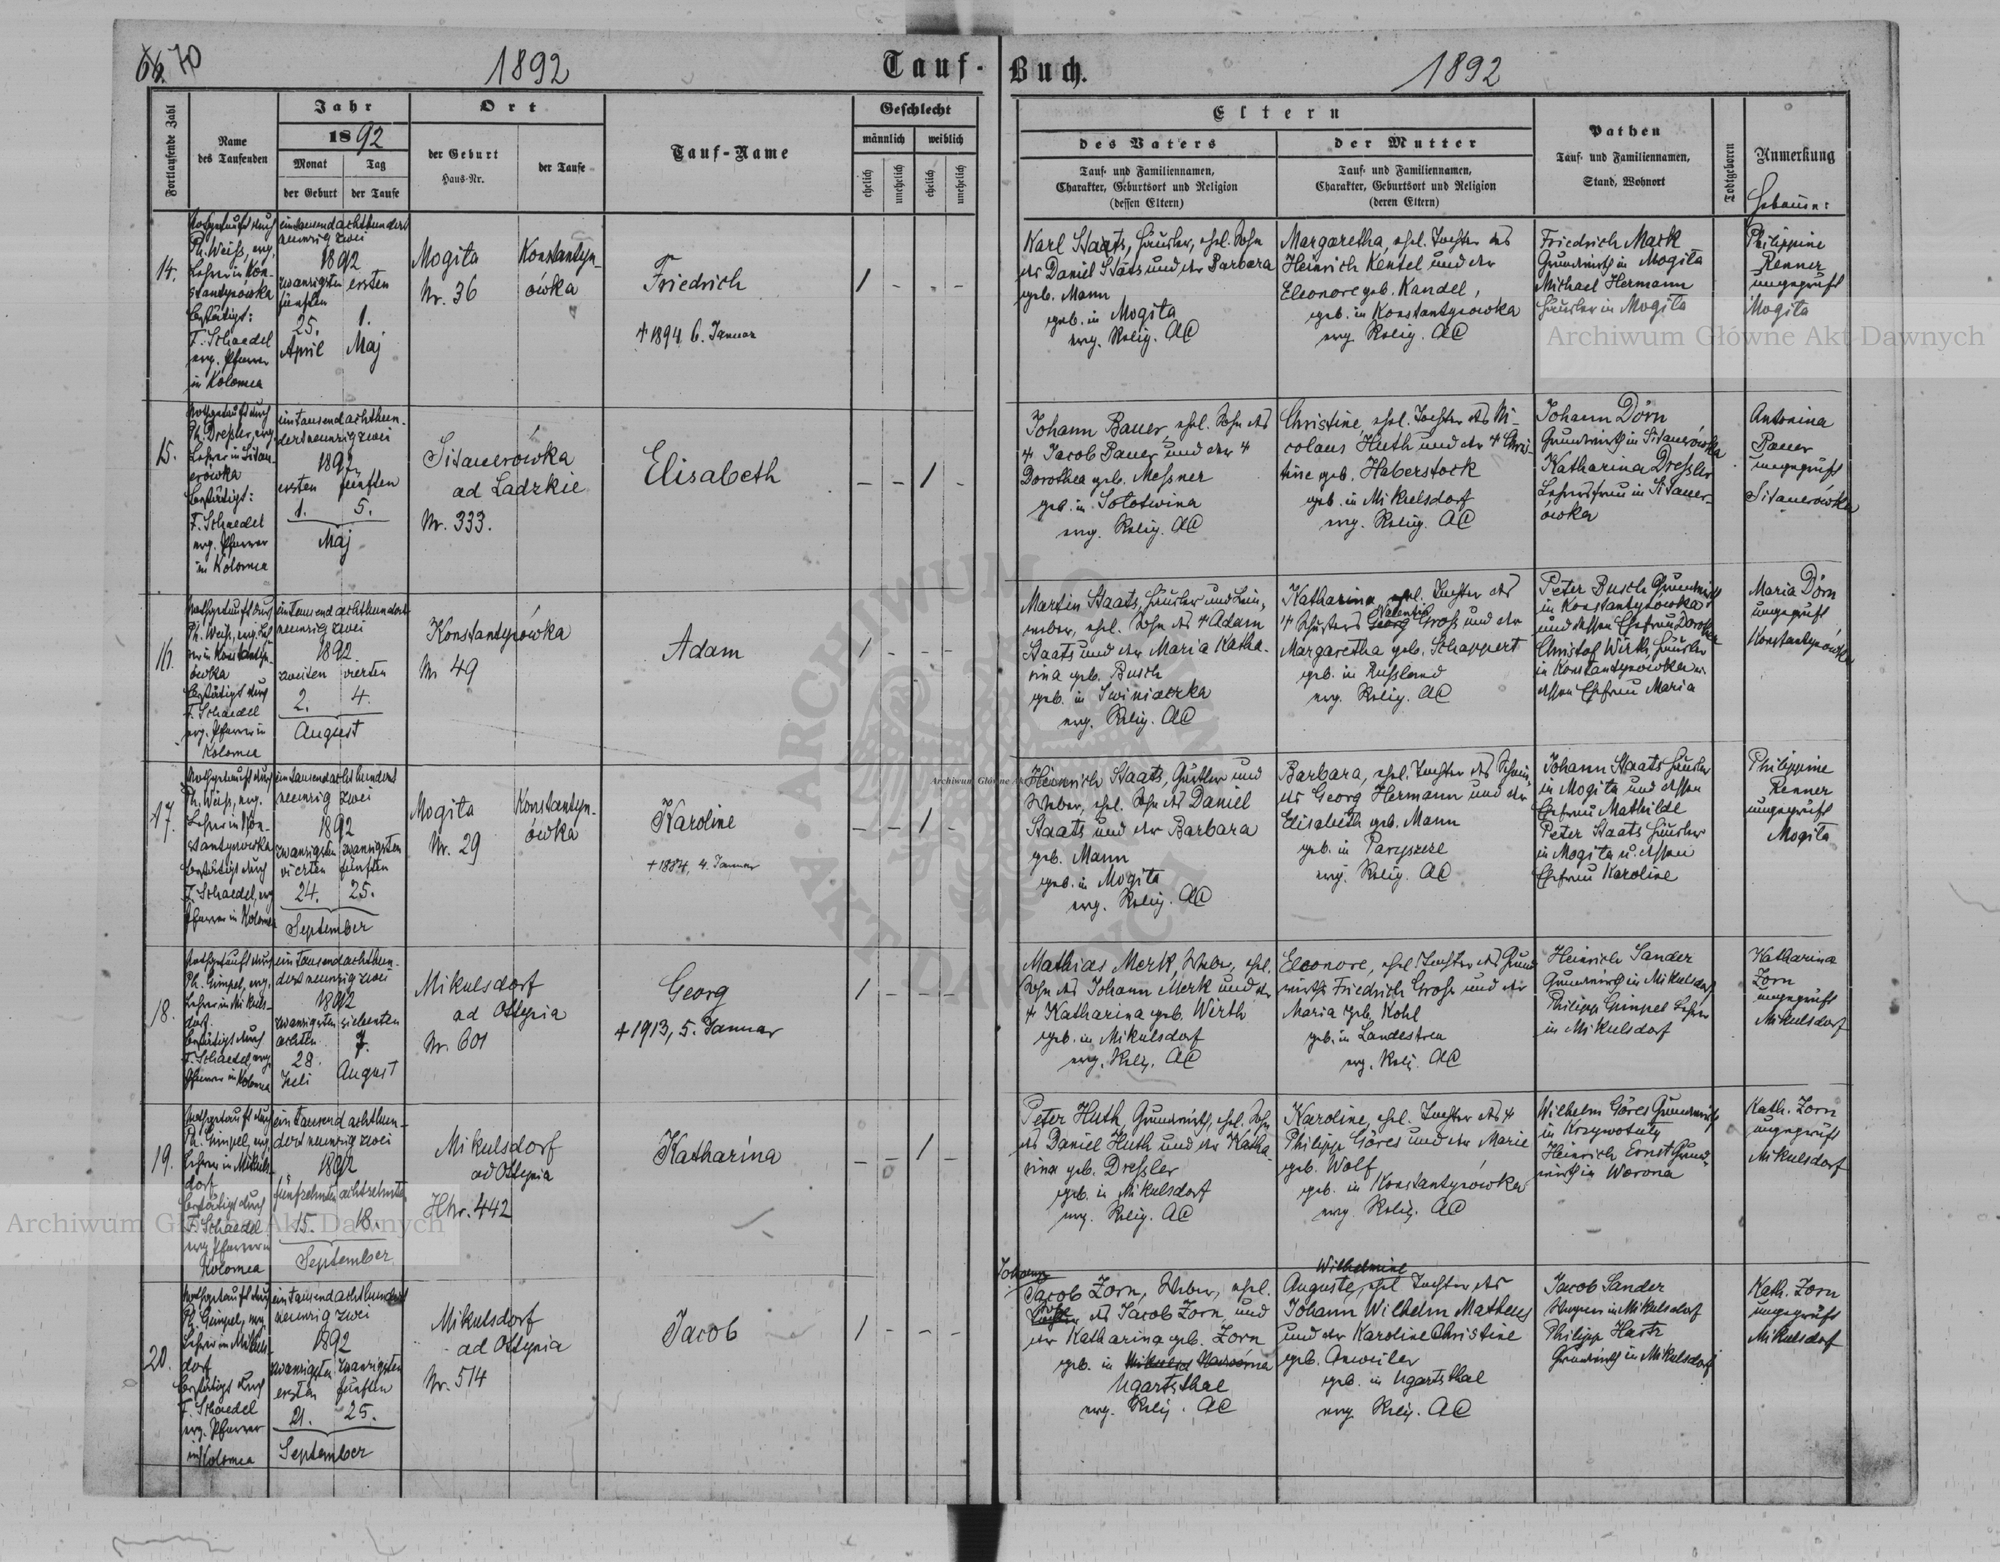 70
1892
Tauf-
Buch.
1892
Fortlaufende Zahl
Name
des Taufenden
Jahr
1892
Monat
Tag
der Geburt
der Taufe
Ort
der Geburt
Haus-Nr.
der Taufe
Tauf-Name
Geschlecht
männlich
weiblich
ehelich
unehelich
ehelich
unehelich
Eltern
des Vaters
Tauf- und Familiennamen,
Charakter, Geburtsort und Religion
(dessen Eltern)
der Mutter
Tauf- und Familiennamen,
Charakter, Geburtsort und Religion
(deren Eltern)
Pathen
Tauf- und Familiennamen,
Stand, Wohnort
Todtgeboren
Anmerkung
Hebamme:
14.
Nothgetauft durch
Ph. Weiß, evg.
Lehrer in Kon-
stantynówka
Bestätigt:
F. Schaedel
evg. Pfarrer
in Kolomea
eintausendachthundert
neunzig zwei
1892
zwanzigsten ersten
fünften
25. 1.
April Maj
Mogita
Nr. 36
Konstantyn-
ówka
Friedrich
+ 1894 6. Januar
1 - - -
Karl Staats, Häusler, ehel. Sohn
des Daniel Staats und der Barbara
geb. Mann
geb. in Mogita
evg. Relig. AC
Margaretha, ehel. Tochter des
Heinrich Kentel und der
Eleonore geb. Kandel,
geb. in Konstantynowka
evg. Relig. AC
Friedrich Mark
Grundwirth in Mogita
Michael Hermann
Häusler in Mogita
Philippine
Renner
ungeprüft
Mogita
15.
Nothgetauft durch
Ph. Dreßler, evg.
Lehrer in Sitau-
erówka
Bestätigt:
F. Schaedel
evg. Pfarrer
in Kolomea
eintausendachthun-
dertneunzig zwei
1892
ersten fünften
1. 5.
Maj
Sitauerówka
ad Ladzkie
Nr. 333.
Elisabeth
- - 1 -
Johann Bauer, ehel. Sohn des
+ Jacob Bauer und der +
Dorothea geb. Meßner
geb. in Sototwina
evg. Relig. AC
Christine, ehel. Tochter des Ni-
colaus Huth und der + Chris-
tine geb. Haberstock
geb. in Mikulsdorf
evg. Relig. AC
Johann Dörn
Grundwirth in Sitauerówka
Katharina Dreßler
Lehrersfrau in Sitauer-
ówka
Antonina
Bauer
ungeprüft
Sitauerówka
16.
Nothgetauft durch
Ph. Weiß, evg. Leh-
rer in Konstantyn-
ówka
Bestätigt durch
F. Schaedel
evg. Pfarrer in
Kolomea
eintausendachthundert
neunzig zwei
1892
zweiten vierten
2. 4.
August
Konstantynówka
Nr 49
Adam
1 - - -
Martin Staats, Häusler und Lein-
weber, ehel. Sohn des + Adam
Staats und der Maria Katha-
rina geb. Busch
geb. in Swiniarka
evg. Relig. AC
Katharina ehel. Tochter des
Valentin
+ Schusters Georg Groß und der
Margaretha geb. Schappert
geb. in Rußland
evg. Relig. AC
Peter Busch Grundwirth
in Konstantynówka
und dessen Ehefrau Dorothea
Christof Wirth Häusler
in Konstantynówka u.
dessen Ehefrau Maria
Maria Dörn
ungeprüft
Konstantynówka
17.
Nothgetauft durch
Ph. Weiß, evg.
Lehrer in Kon-
stantynowka
Bestätigt durch
F. Schaedel, evg
Pfarrer in Kolomea
eintausendachthundert
neunzig zwei
1892
zwanzigsten zwanzigsten
vierten fünften
24. 25.
September
Mogita
Nr. 29
Konstantyn-
ówka
Karoline
+ 1884, 4. Januar
- - 1 -
Heinrich Staats, Gürtler und
Weber, ehel. Sohn des Daniel
Staats und der Barbara
geb. Mann
geb. in Mogita
evg. Relig. AC
Barbara, ehel. Tochter des
des Georg Hermann und der
Elisabeth geb. Mann
geb. in Paryszcze
evg. Relig. AC
Johann Staats Häusler
in Mogita und dessen
Ehefrau Mathilde
Peter Staats Häusler
in Mogita u. dessen
Ehefrau Karoline
Philippine
Renner
ungeprüft
Mogita
18.
Nothgetauft durch
Ph. Gimpel, evg.
Lehrer in Mikuls-
dorf.
Bestätigt durch
F. Schaedel, evg.
Pfarrer in Kolomea
eintausendachthun-
dertneunzig zwei
1892
zwanzigsten siebenten
achten
28. 7.
Juli August
Mikulsdorf
ad Ottynia
Nr. 601
Georg
+ 1913, 5. Januar
1 - - -
Mathias Merk, Weber, ehel.
Sohn des Johann Merk und der
+ Katharina geb. Wirth
geb. in Mikulsdorf
evg. Relig. AC
Eleonore, ehel. Tochter des Grund-
wirths Friedrich Groß und der
Maria geb. Kohl
geb. in Landestreu
evg. Relig. AC
Heinrich Sander
Grundwirth in Mikulsdorf
Philipp Gimpel Lehrer
in Mikulsdorf
Katharina
Zorn
ungeprüft
Mikulsdorf
19.
Nothgetauft durch
Ph. Gimpel, evg
Lehrer in Mikuls-
dorf
Bestätigt durch
F. Schaedel
evg Pfarrer in
Kolomea
eintausendachthun-
dertneunzig zwei
1892
fünfzehnten achtzehnten
15. 18.
September
Mikulsdorf
ad Ottynia
Hnr. 442
Katharina
- - 1 -
Peter Huth, Grundwirth, ehel. Sohn
des Daniel Huth und der Katha-
rina geb. Dreßler
geb. in Mikulsdorf
evg. Relig. AC
Karoline, ehel. Tochter des +
Philipp Göres und der Marie
geb. Wolf
geb. in Konstantynówka
evg. Relig. AC
Wilhelm Göres Grundwirth
in Krzywotuly
Heinrich Ernst Grund-
wirth in Worona
Kath. Zorn
ungeprüft
Mikulsdorf
20.
Nothgetauft durch
Ph. Gimpel, evg
Lehrer in Mikuls-
dorf
Bestätigt durch
F. Schaedel
evg. Pfarrer
in Kolomea
eintausendachthundert
neunzig zwei
1892
zwanzigsten zwanzigsten
ersten fünften
21. 25.
September
Mikulsdorf
ad Ottynia
Nr. 514
Jacob
1 - - -
Johann
Jacob Zorn, Weber, ehel.
Sohn des Jacob Zorn und
der Katharina geb. Zorn
geb. in Mikulsd Nadwórna
Ugartsthal
evg. Relig. AC
Wilhelmine
Auguste, ehel Tochter des
Johann Wilhelm Matheus
und der Karoline Christine
geb. Anweiler
geb. in Ugartsthal
evg. Relig. AC
Jacob Sander
Wagner in Mikulsdorf
Philipp Hartz
Grundwirth in Mikulsdorf
Kath. Zorn
ungeprüft
Mikulsdorf
Archiwum Główne Akt Dawnych
Archiwum Główne Akt Dawnych